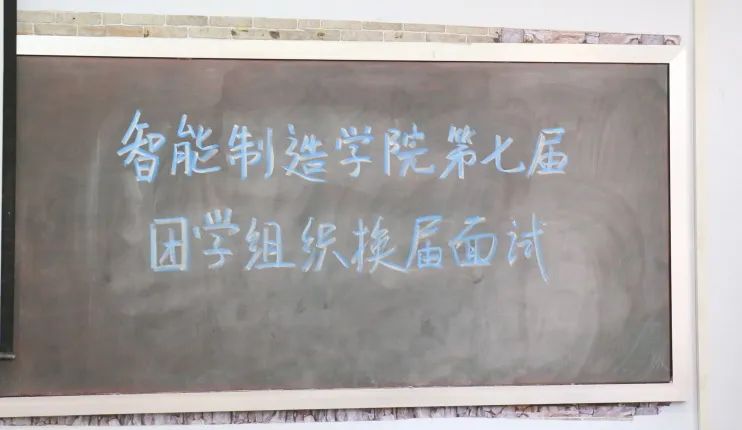 智能制造学院第七届
团学组织换届面试